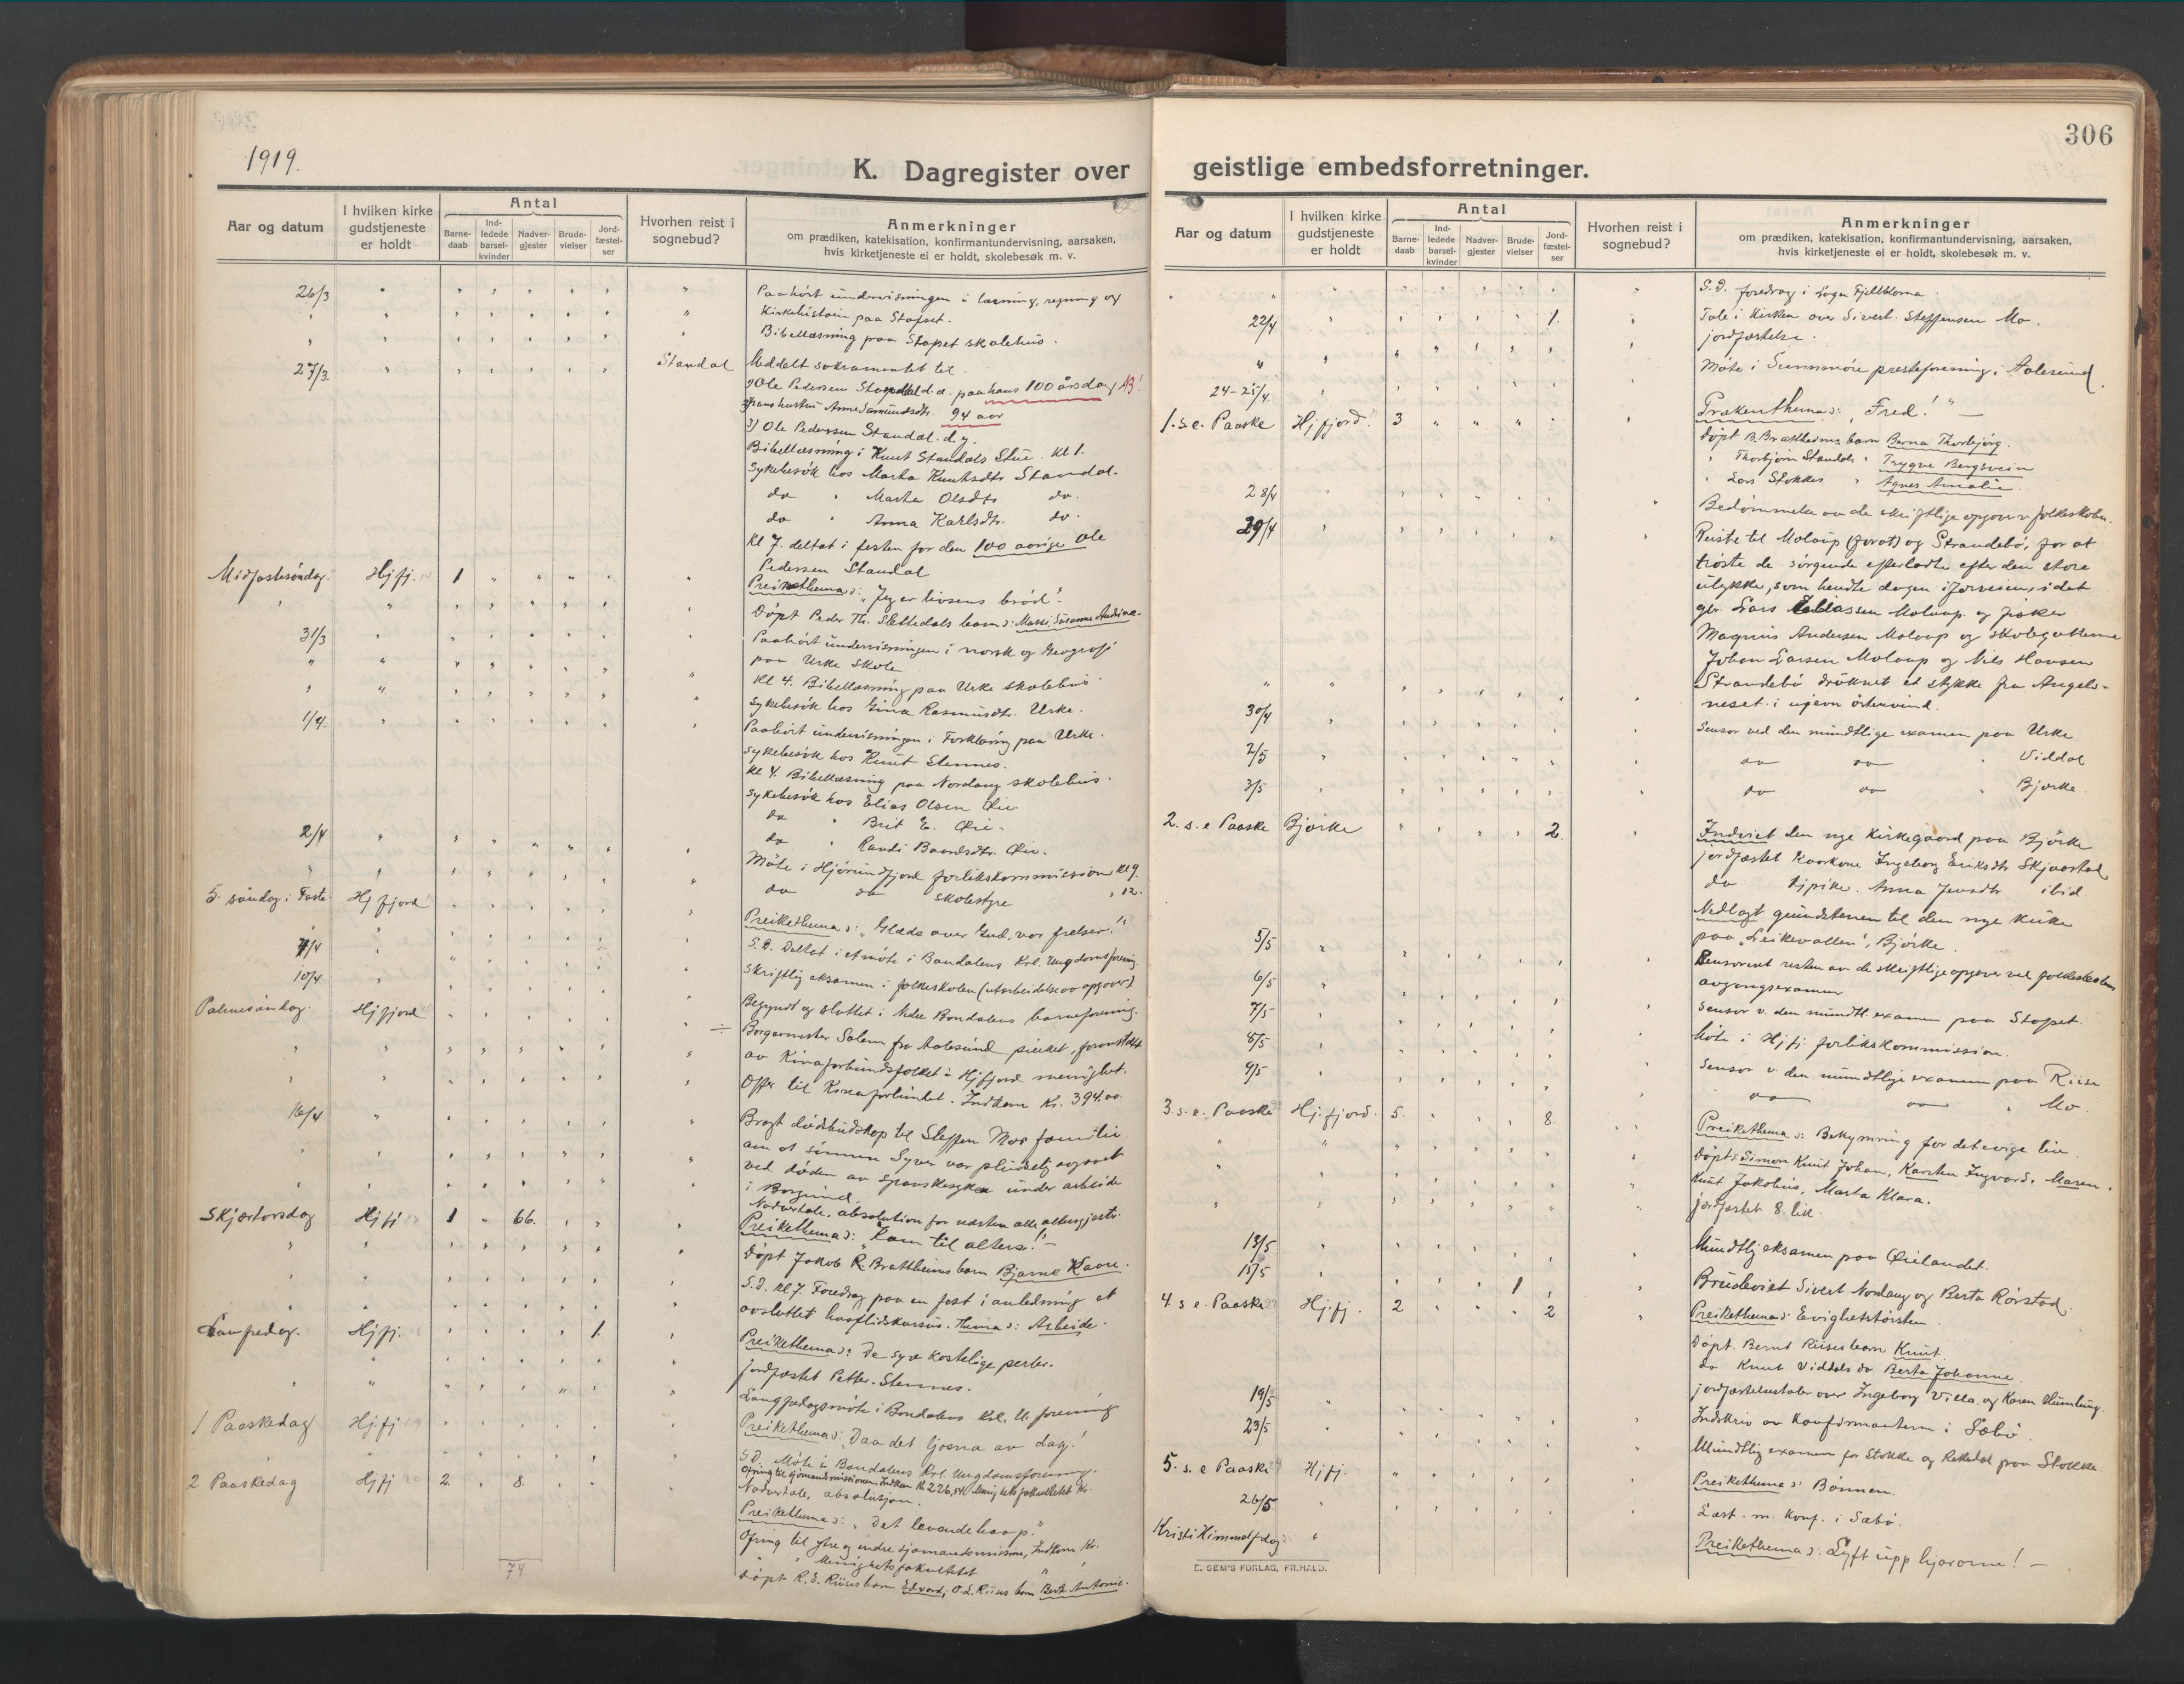 1919.
K. Dagregister over
Aar og datum
I hvilken kirke gudstjeneste er holdt
Antal
Barne-daab
Ind-ledede barsel-kvinder
Nadver-gjester
Brude-vielser
Jord-fæstel-ser
Hvorhen reist i sognebud?
Anmerkninger
om prædiken, katekisation, konfirmantundervisning, aarsaken,
hvis kirketjeneste ei er holdt, skolebesøk m. v.
26/3 Paahört undervisningen i læsning, regning og
Kirkehistorie paa Stafset.
Bibellæsning paa Stapet skolehus.
27/3. Standal Meddelt sakramentet til
1) Ole Pedersen Standal d.æ. paa hans 100 årsdag, NB!
2) hans hustru Anne Samundsdtr. 94 aar
3) Ole Pedersen Standal. d.y.
Bibellæsning i Knut Standals Stue. Kl 1.
Sykebesök hos Marta Knutsdtr Standal.
do " Marta Olsdtr do.
do " Anna Karlsdtr. do.
Kl 7. deltat i festen for den 100 aarige Ole
Pedersen Standal
Midfastesöndag. Hj.fj. 1 Preikethema: "Jeg er livsens bröd".
Döpt Peder Th. Slettedals barn: Massi Susanne Andrine.
31/3 Paahört undervisningen i norsk og Geografi
paa Urke skole
Kl 4. Bibellæsning paa Urke skolehus
Sykebesök hos Gina Rasmusdtr. Urke.
1/4. Paahört undervisningen i Forklaring paa Urke.
Sykebesök hos Knut Stennes.
Kl 4. Bibellæsning paa Nordang skolehus.
Sykebesök hos Elias Olsen Øie
do " Brit E. Øie.
do " Randi Baardsdtr. Øie.
2/4 Möte i Hjörundfjord forlikskommission Kl 9.
do do skolestyre " 12.
5. söndag i Faste. Hj fjord Preikethema: "Glæde over Gud, vor frelser!"
S.D. Deltat i et möte i Bondalens Krl. Ungdomsforening
7/4 Skriftlig eksamen i folkeskolen (utarbeidelse av opgaver)
10/4 Begyndt og sluttet i Nedre Bondalens barneforening.
Palmesöndag. Hj fjord ÷ Borgermester Solem fra Aalesund preket, foranstaltet
av Kinaforbundsfolket i Hj fjord menighet.
Offer til Kinaforbundet. Indkom Kr. 394.00.
16/4 Bragt dödsbudskap til Steffen Mos familie
om at sönnen Syver var pludselig avgaaet
ved döden av Spanskesyken under arbeide
i Borgund.
Skjærtorsdag Hj fj 1 66. Nadvertale, absolution for næsten alle altergjester.
Preikethema: "Kom til alters!" —
Döpt Jakob R. Brattheims barn Bjarne Kaare.
S.D. Kl 7. Foredrag paa en fest i anledning et
avsluttet husflidskursus. Thema: Arbeide.
Langfredag. Hj fj. 1. Preikethema: De syv kostelige perler.
Jordfæstet Petter Stennes.
Langfredagsmöte i Bondalens Krl. U. forening
1 Paaskedag Hj fj Preikethema: Daa det ljosna av dag!
S.D. Möte i Bondalens Krl. Ungdomsforening.
2 Paaskedag Hj fj 2. 8. Nadvertale, absolusjon.
Preikethema: "Det levande haap."
Ofring til ytre og indre sjømandsmission, Indkom Kr.
" " Menighetsfakultetet "
Döpt R. E. Riises barn Edvard, O. L. Riises barn Berte Antonie.
74
306
geistlige embedsforretninger.
Aar og datum
I hvilken kirke gudstjeneste er holdt
Antal
Barne-daab
Ind-ledede barsel-kvinder
Nadver-gjester
Brude-vielser
Jord-fæstel-ser
Hvorhen reist i sognebud?
Anmerkninger
om prædiken, katekisation, konfirmantundervisning, aarsaken,
hvis kirketjeneste ei er holdt, skolebesøk m. v.
S.D. foredrag i Fjellbloma
22/4 1. Tale i Kirken over Sivert Steffensen Mo.
jordfæstelse.
24-25/4. Möte i Sunnmöre presteforening i Aalesund.
1. s.e. Paaske Hj.fjord. 3 Prækenthema: "Fred!" —
Döpt B. Brattheims barn Berna Thorbjörg.
" Thorbjörn Standals " Trygve Bergsvein
" Lars Stokkes " Agnes Amalie.
28/4 Bedömmelse av de skriftlige opgaver v. folkeskolen.
29/4 Reiste til Molaup (forat) og Strandebö, for at
tröste de sörgende efterladte efter den store
ulykke, som hendte dagen i forveien, idet
gbr. Lars Eliassen Molaup og fisker
Magnus Andersen Molaup og skoleguttene
Johan Larsen Molaup og Nils Hansen
Strandebö druknet et stykke fra Angels-
neset i ujevn östenvind.
30/4 Sensor ved den mundtlige examen paa Urke
2/5 do do " Viddal
3/5 do do " Bjørke
2. s. e Paaske Bjørke 2. Indviet den nye Kirkegaard paa Bjørke
jordfæstet Kaarkone Ingeborg Eriksdtr Skjaastad
do Tjpike. Anna Jensdtr ibid
Nedlagt grundstenen til den nye kirke
paa "Leikevollen", Bjørke.
5/5 Censoreret resten av de skriftlige opgaver ved folkeskolens
avgangsexamen
6/5 Sensor v. den mundtl. examen paa Stapet.
7/5 Möte i Hj fj forlikskommission.
8/5 Sensor v. den mundtlige examen paa Riise
9/5 do do " Mo.
3. s. e. Paaske Hj.fjord. 5. 8. Preikethema: Bekymring for det evige liv.
Döpt: Simon Knut Johan, Karsten Ingvard, Maren,
Knut Jakobus, Marta Klara.
Jordfæstet 8 lik.
13/5 Mundtlig eksamen paa Øielandet.
15/5 1 Brudeviet Sivert Nordang og Berta Rörstad.
4. s e. Paaske Hj.fj. 2 2 Preikethema: Evighetstörsten.
Döpt. Bernt Riises barn Knut.
do Knut Viddals do Berta Johanne.
jordfæstelsestaler over Ingeborg Villa og Karen Humlung.
19/5 Indskriv av Konfirmantern i Sæbö.
23/5 Mundtlig examen for Stokke og Rekkedal paa Stokke.
5. s. e Paaske Hj.fj. Preikethema: Bönnen.
26/5 Læst. m. Konf. i Sæbö.
Kristi Himmelf.dag " Preikethema: Lyft upp hjarorne! —
E. SEM'S FORLAG, FR.HALD.